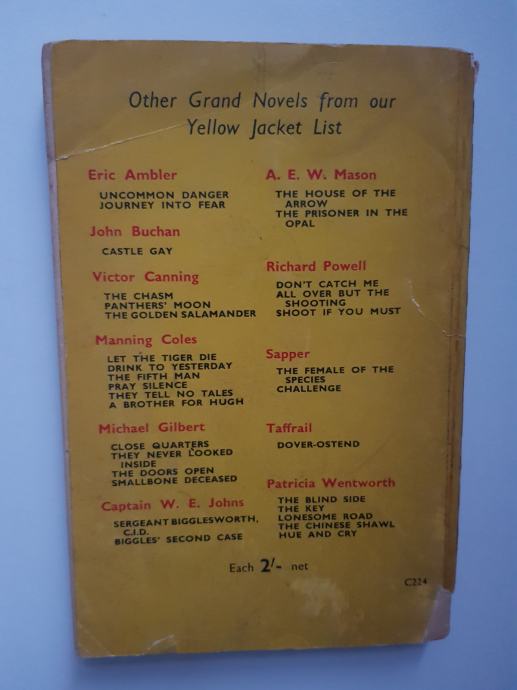 Other Grand Novels from our
Yellow Jacket List
Eric Ambler
UNCOMMON DANGER
JOURNEY INTO FEAR
John Buchan
CASTLE GAY
Victor Canning
THE CHASM
PANTHERS' MOON
THE GOLDEN SALAMANDER
Manning Coles
LET THE TIGER DIE
DRINK TO YESTERDAY
THE FIFTH MAN
PRAY SILENCE
THEY TELL NO TALES
A BROTHER FOR HUGH
Michael Gilbert
CLOSE QUARTERS
THEY NEVER LOOKED
INSIDE
THE DOORS OPEN
SMALLBONE DECEASED
Captain W. E. Johns
SERGEANT BIGGLESWORTH,
C.I.D.
BIGGLES' SECOND CASE
A. E. W. Mason
THE HOUSE OF THE
ARROW
THE PRISONER IN THE
OPAL
Richard Powell
DON'T CATCH ME
ALL OVER BUT THE
SHOOTING
SHOOT IF YOU MUST
Sapper
THE FEMALE OF THE
SPECIES
CHALLENGE
Taffrail
DOVER-OSTEND
Patricia Wentworth
THE BLIND SIDE
THE KEY
LONESOME ROAD
THE CHINESE SHAWL
HUE AND CRY
Each 2/- net
C224